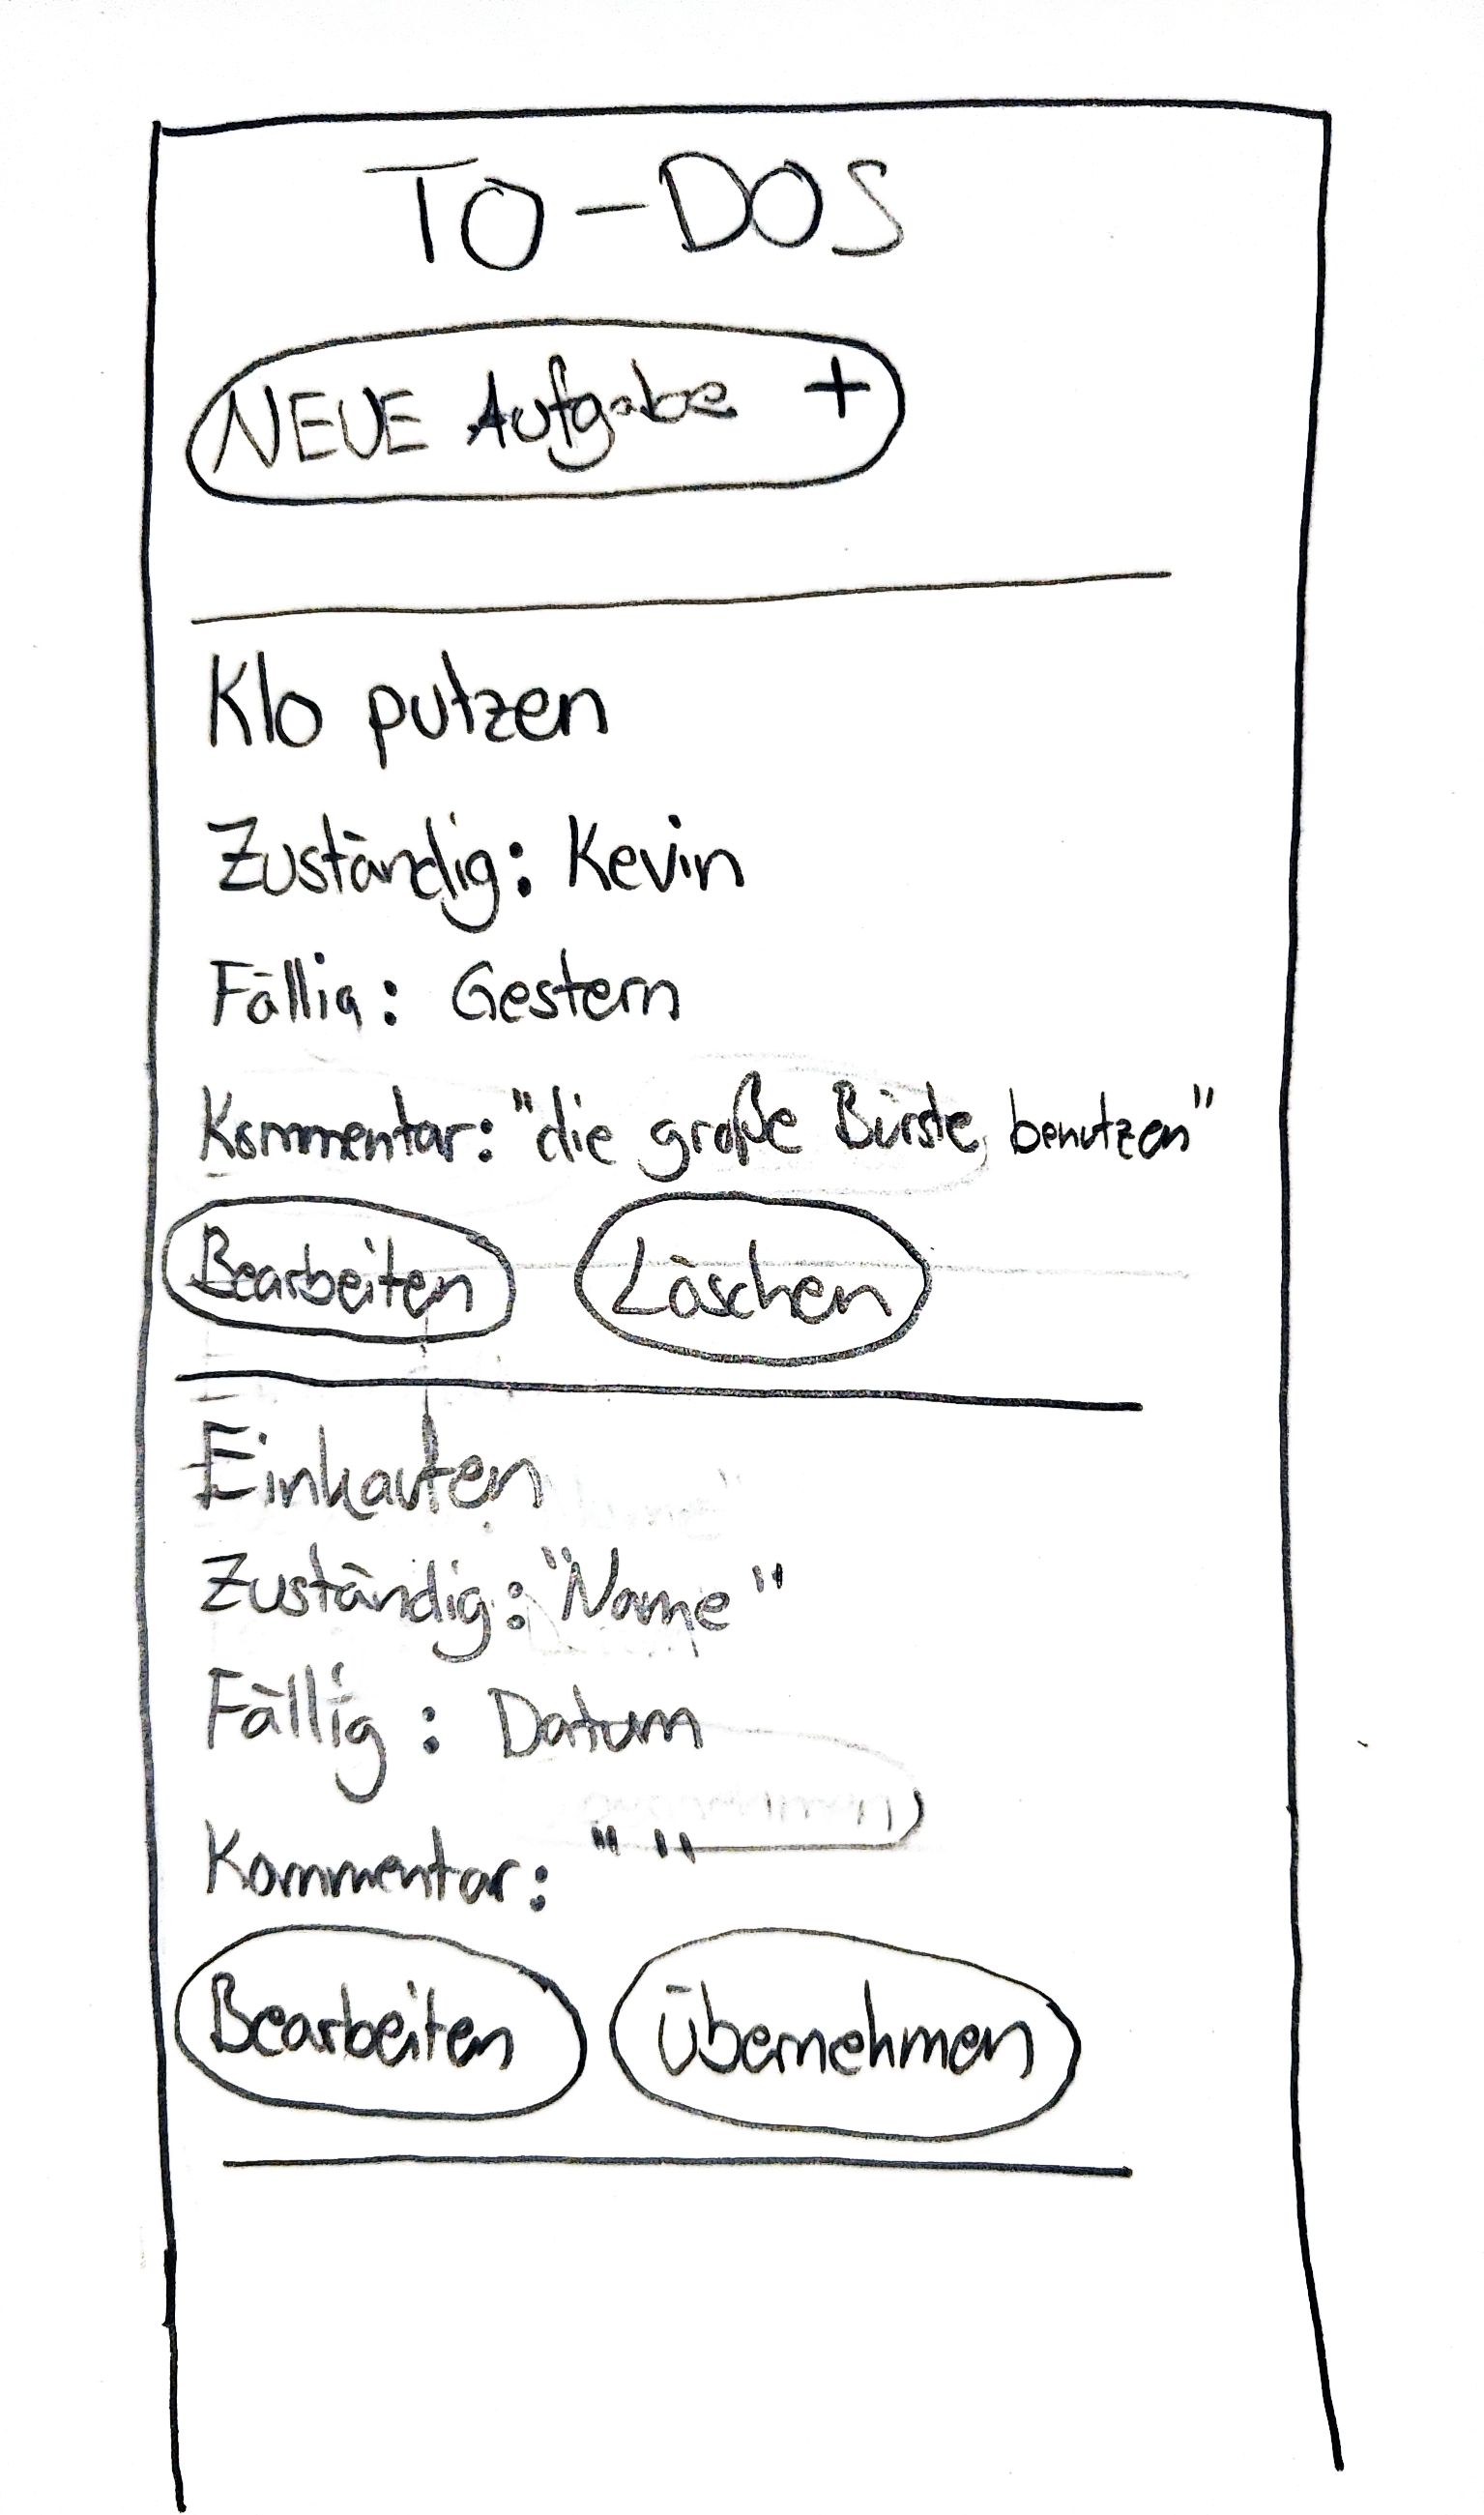 TO-DOS
NEUE Aufgabe +
Klo putzen
Zuständig: Kevin
Fällig: Gestern
Kommentar: "die große Bürste benutzen"
Bearbeiten Löschen
Einkaufen
Zuständig: "Name"
Fällig: Datum
Kommentar: " "
Bearbeiten übernehmen